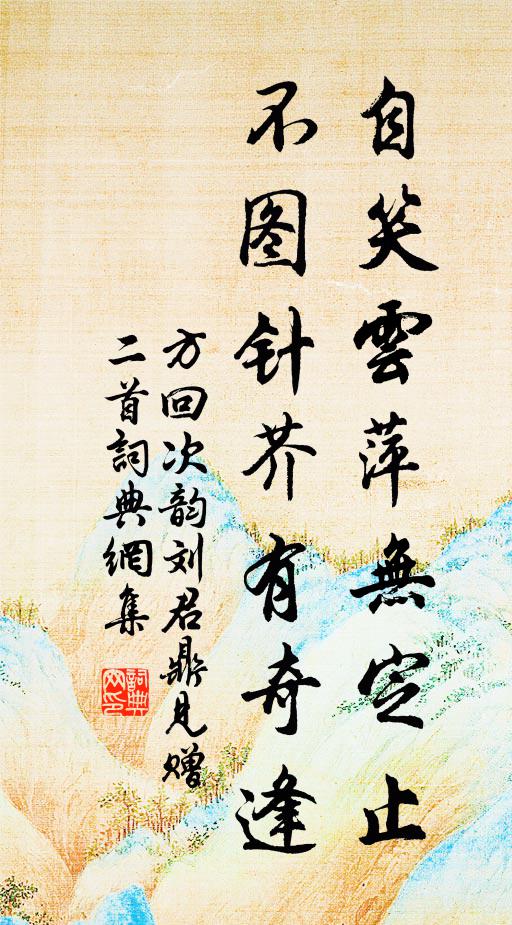 自笑雲萍無定止
不图针芥有奇逢
方回次韵刘君鼎見赠
二首詞典網集
詞典
网印